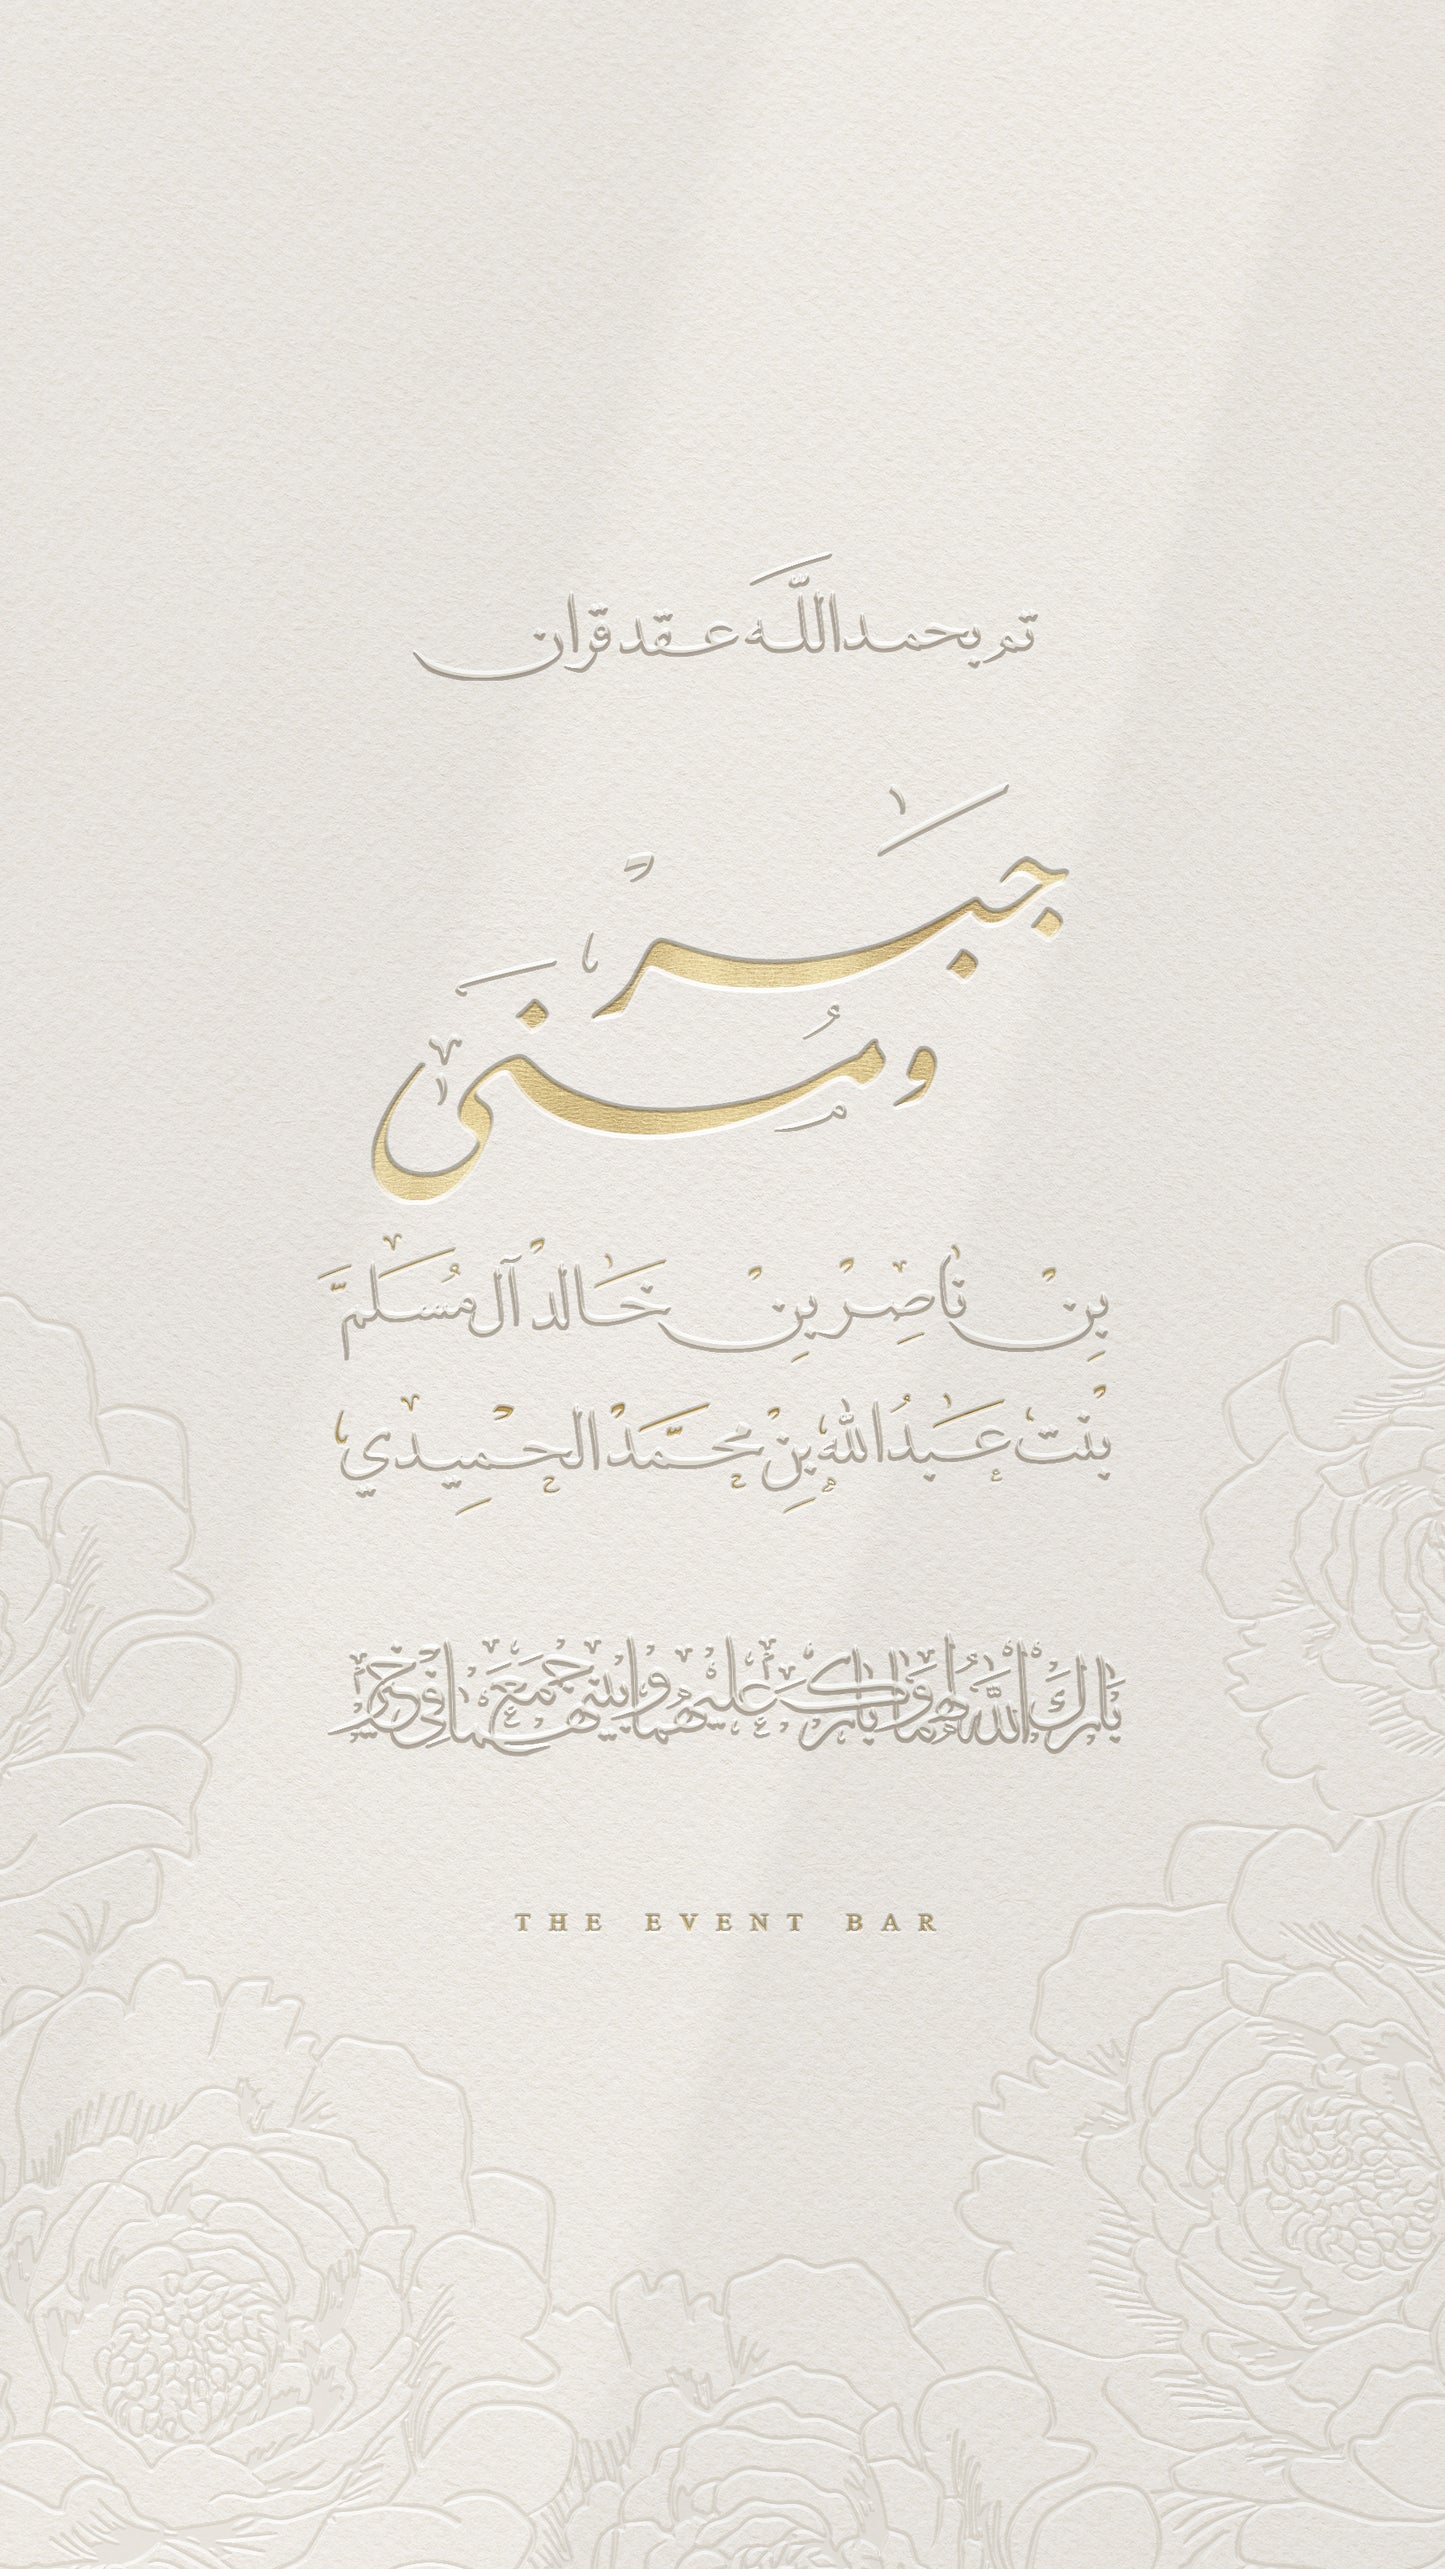 تم بحمد اللَّه عقد قران
جَبر
ومُنى
بِن ناصِر بِن خَالد آل مُسَلَّم
بنت عَبدُالله بِن محمَّد الحمِيدي
بارك الله لهما وبارك عليهما وجمع بينهما في خير
THE EVENT BAR